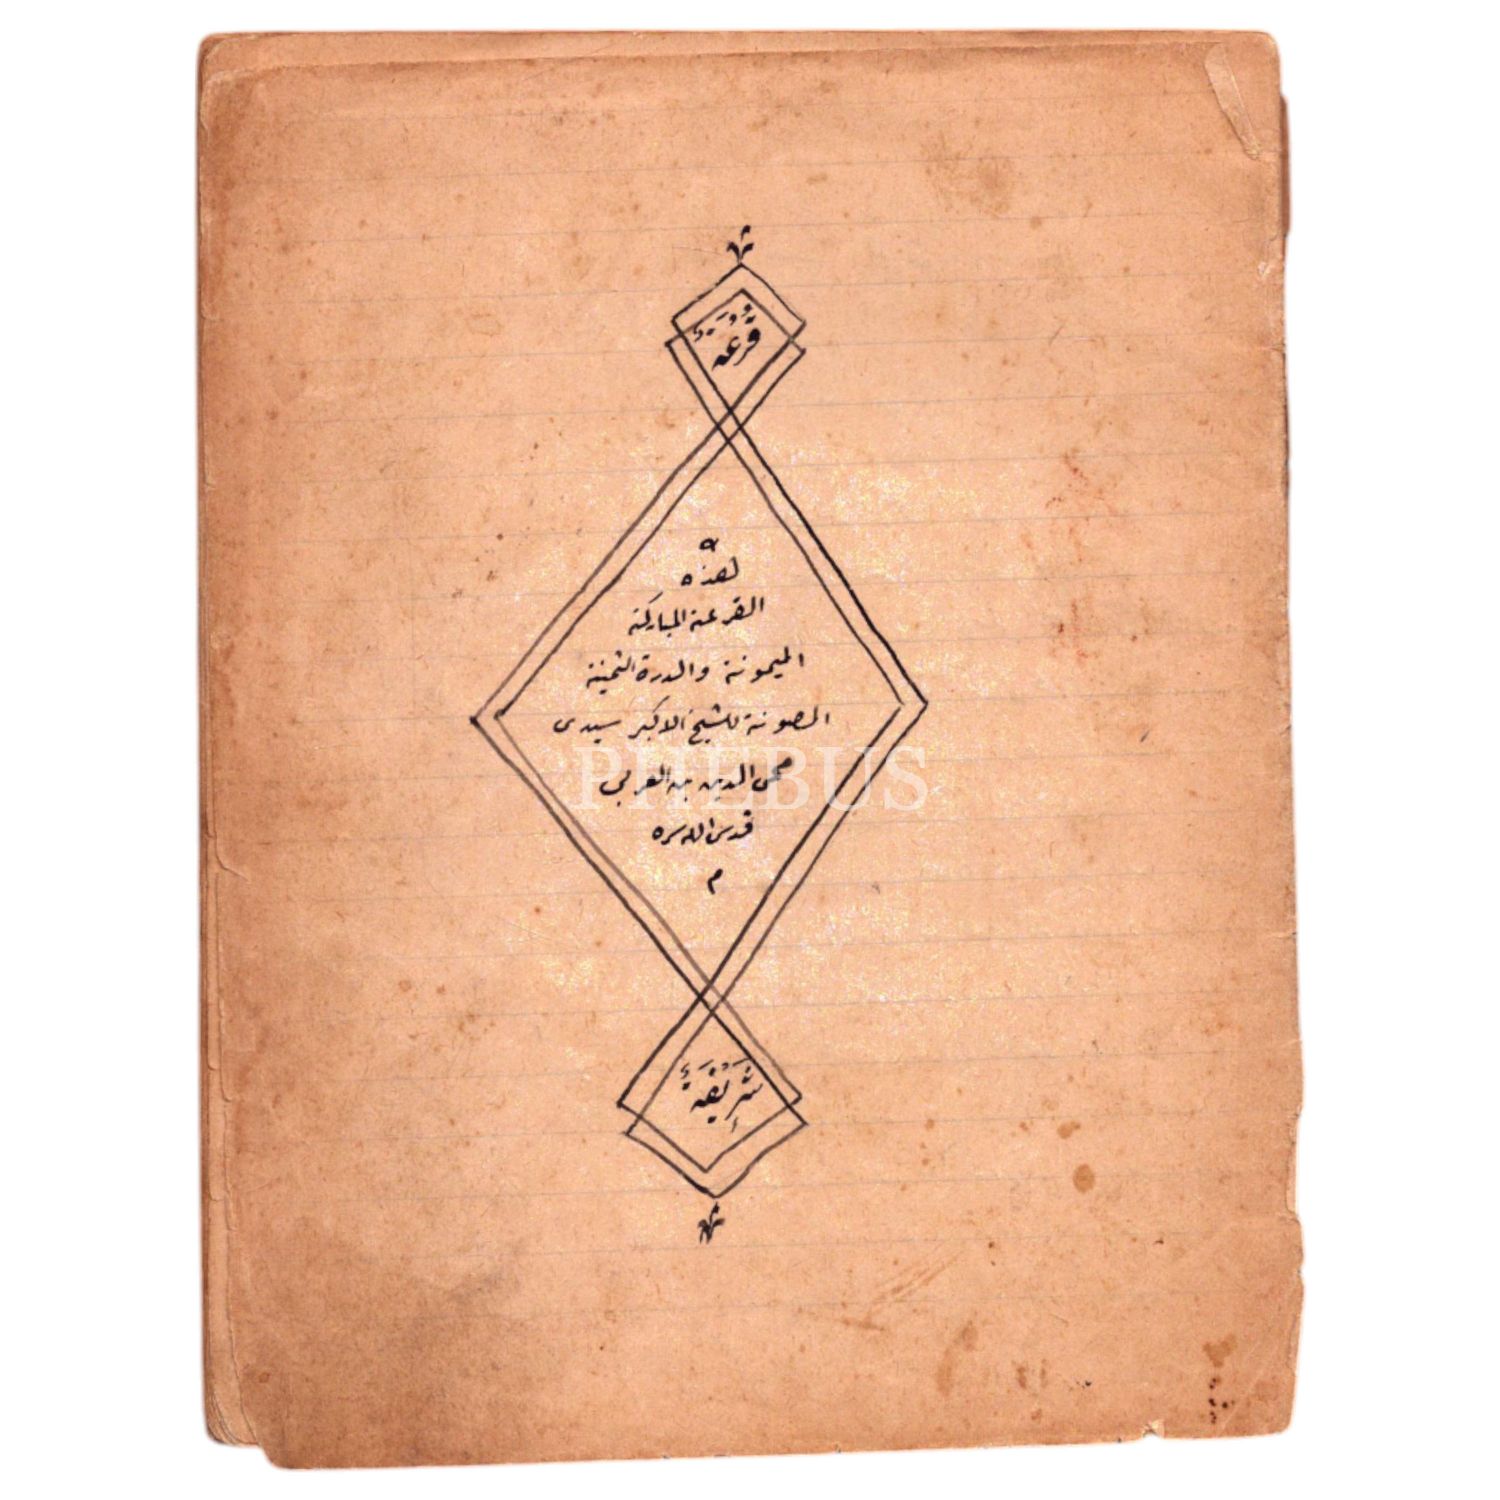 قرعة
هذه
القرعة المباركة
الميمونة والدرة الثمينة
المصونة للشيخ الاكبر سيدى
محى الدين بن العربي
قدس الله سره
م
PHEBUS
شريفة